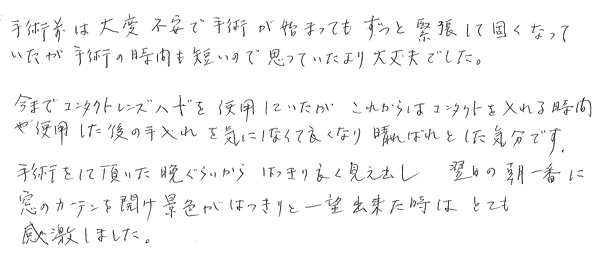 手術前は大変不安で手術が始まってもずっと緊張して固くなって
いたが手術の時間も短いので思っていたより大丈夫でした。
今までコンタクトレンズハードを使用していたが これからはコンタクトを入れる時間
や使用した後の手入れを気にしなくて良くなり晴ればれとした気分です。
手術をして頂いた晩ぐらいから はっきり良く見え出し 翌日の朝一番に
窓のカーテンを開け景色がはっきりと一望出来た時は とても
感激しました。